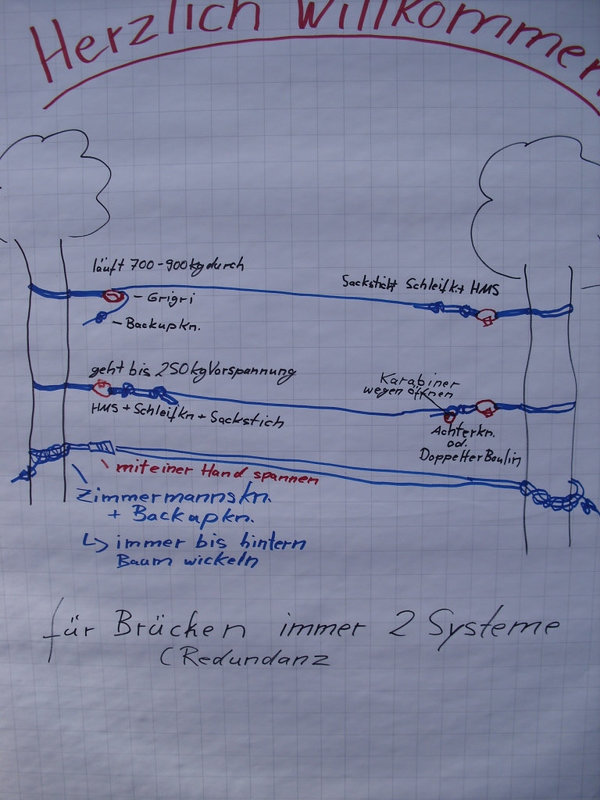 Herzlich Willkommen
läuft 700-900kg durch
- Grigri
- Backupkn.
Sackstich Schleifkn HMS
geht bis 250kg Vorspannung
HMS + Schleifkn + Sackstich
Karabiner
wegen öffnen
Achterkn.
od.
Doppelter Boulin
mit einer Hand spannen
Zimmermannskn.
+ Backapkn.
↳ immer bis hintern
Baum wickeln
für Brücken immer 2 Systeme
(Redundanz